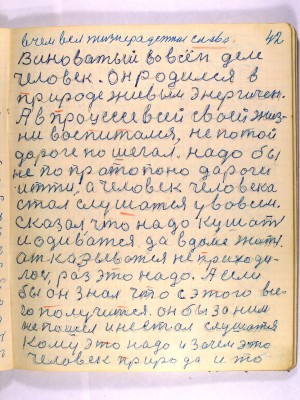 в чем вся жизнерадостная слава. 42
Виноватый во всём деле
человек. Он родился в
природе живым энергичен.
А в процессе всей своей жиз-
ни воспитался, не по той
дороге пошегал. надо бы
не по протопоно дароги
итти, а человек человека
стал слушатся у во всем.
Сказал что надо кушат
и одиватся да в доме жить.
атказыватся не приходи-
лось, раз это надо. А если
бы он знал что с этого все-
го получится. он бы за ним
не пошел и не стал слушатся
Кому это надо и зачем это
человек природа и то